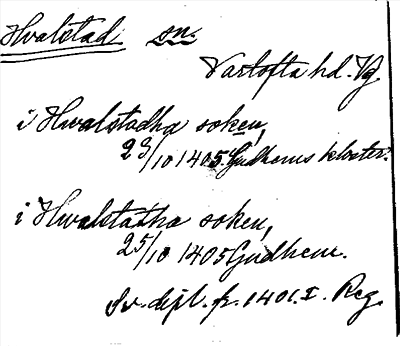 Hvalstad sn.
Vartofta hd. Vg
i Hwalstadha soken,
23/10 1405 Gudhems kloster.
i Hwalstatha soken,
25/10 1405 Gudhem.
Sv. dipl. fr. 1401. I. Reg.